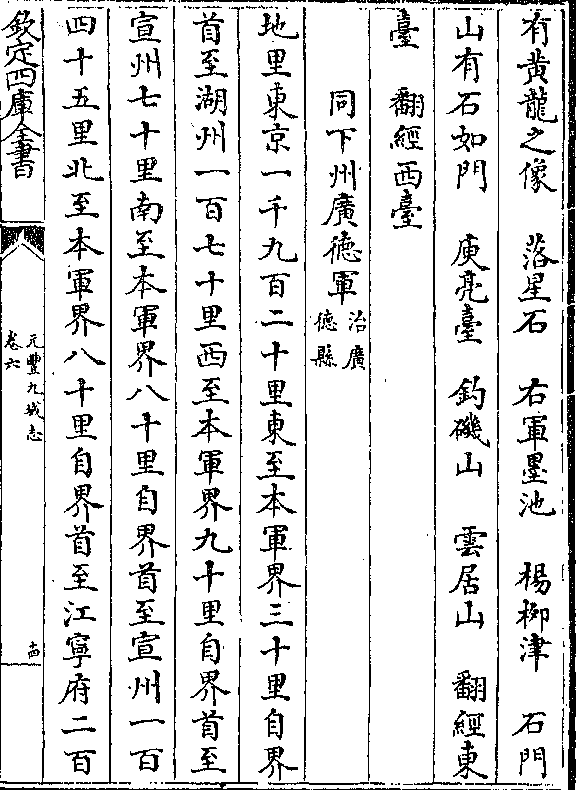 有黄龍之像　落星石　右軍墨池　楊栁津　石門
山有石如門　庾亮臺　釣磯山　雲居山　翻經東
臺　翻經西臺
同下州廣徳軍治廣徳縣
地里東京一千九百二十里東至本軍界三十里自界
首至湖州一百七十里西至本軍界九十里自界首至
宣州七十里南至本軍界八十里自界首至宣州一百
四十五里北至本軍界八十里自界首至江寧府二百
欽定四庫全書
元豐九域志
卷六
十四